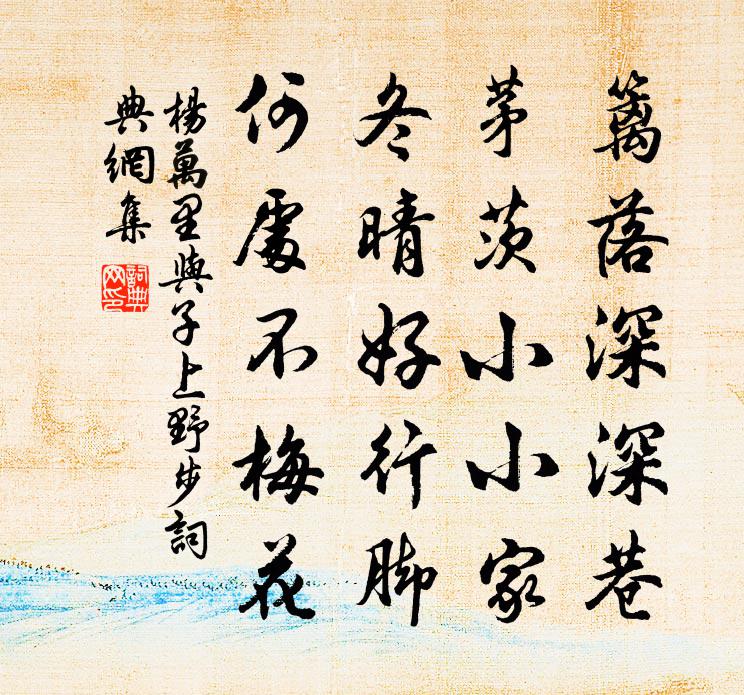 籬落深深巷
茅茨小小家
冬晴好行脚
何處不梅花
楊萬里與子上野步詞
典網集
詞典网印